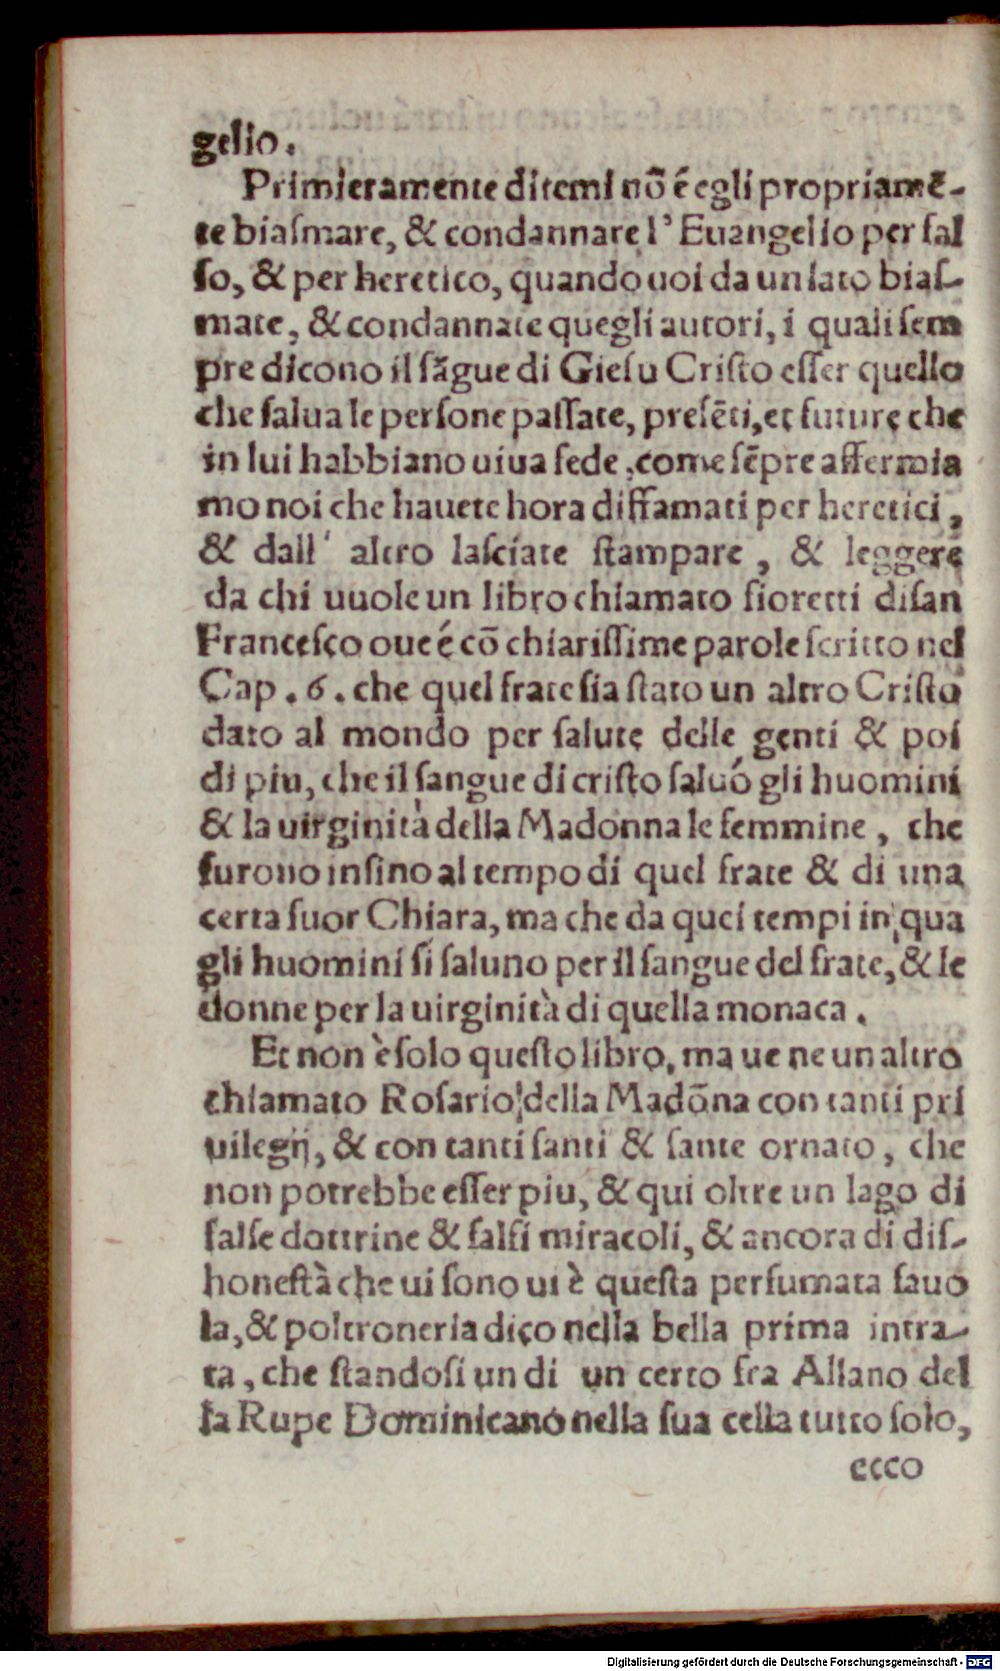 gelio.
Primieramente ditemi nõ é egli propriamẽ-
te biaſmare, & condannare l' Euangelio per fal
ſo, & per heretico, quando uoi da un lato biaſ-
mate, & condannate quegli autori, i quali ſem
pre dicono il ſãgue di Gieſu Criſto eſſer quello
che ſalua le perſone paſſate, preſẽti, et future che
in lui habbiano uiua fede, come ſẽpre affermia
mo noi che hauete hora diffamati per heretici,
& dall' altro laſciate ſtampare, & leggere
da chi uuole un libro chiamato fioretti di ſan
Franceſco oue é cõ chiariſſime parole ſcritto nel
Cap. 6. che quel frate ſia ſtato un altro Criſto
dato al mondo per ſalute delle genti & poi
di piu, che il ſangue di criſto ſaluó gli huomini
& la uirginità della Madonna le femmine, che
furono inſino al tempo di quel frate & di una
certa ſuor Chiara, ma che da quei tempi in qua
gli huomini ſi ſaluno per il ſangue del frate, & le
donne per la uirginità di quella monaca.
Et non è ſolo queſto libro, ma ue ne un altro
chiamato Roſario della Madõna con tanti pri
uilegij, & con tanti ſanti & ſante ornato, che
non potrebbe eſſer piu, & qui oltre un lago di
falſe dottrine & falſi miracoli, & ancora di diſ-
honeſtà che ui ſono ui è queſta perfumata fauo
la, & poltroneria dico nella bella prima intra-
ta, che ſtandoſi un di un certo fra Allano del
la Rupe Dominicano nella ſua cella tutto ſolo,
ecco
Digitalisierung gefördert durch die Deutsche Forschungsgemeinschaft - DFG